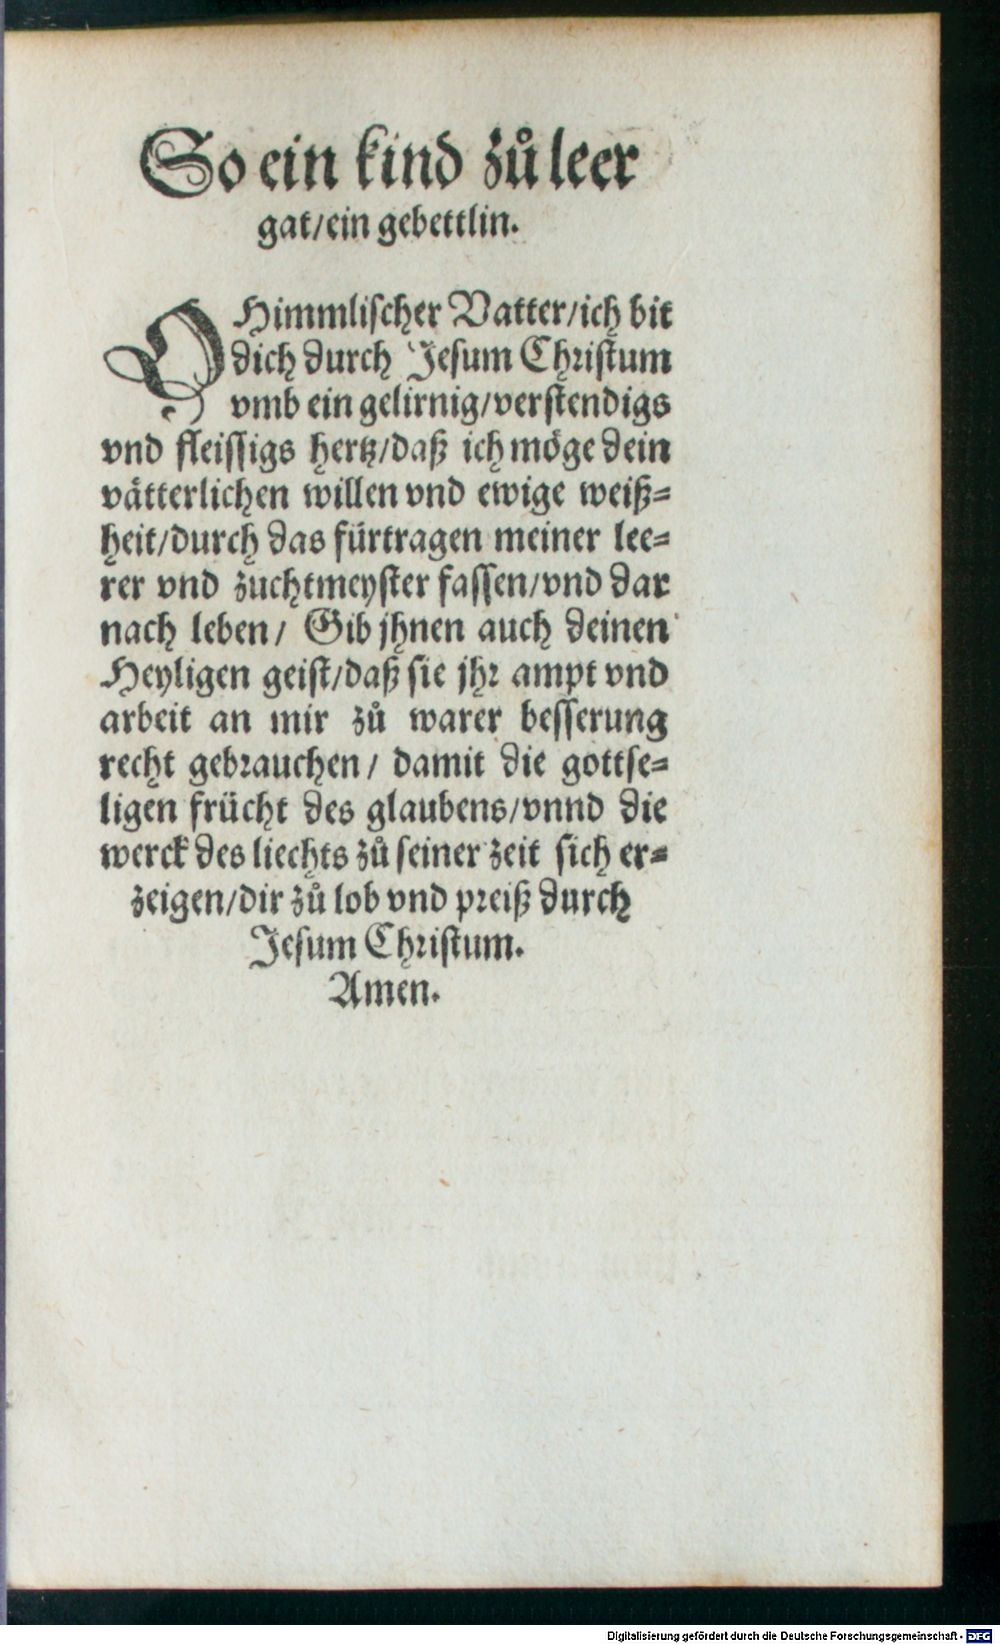 So ein kind zů leer
gat/ein gebettlin.
O Himmlischer Vatter/ich bit
dich durch Jesum Christum
vmb ein gelirnig/verstendigs
vnd fleissigs hertz/daß ich möge dein
vätterlichen willen vnd ewige weiß=
heit/durch das fürtragen meiner lee=
rer vnd zuchtmeyster fassen/vnd dar
nach leben/ Gib jhnen auch deinen
Heyligen geist/daß sie jhr ampt vnd
arbeit an mir zů warer besserung
recht gebrauchen/ damit die gottse=
ligen frücht des glaubens/vnnd die
werck des liechts zů seiner zeit sich er=
zeigen/dir zů lob vnd preiß durch
Jesum Christum.
Amen.
Digitalisierung gefördert durch die Deutsche Forschungsgemeinschaft - DFG